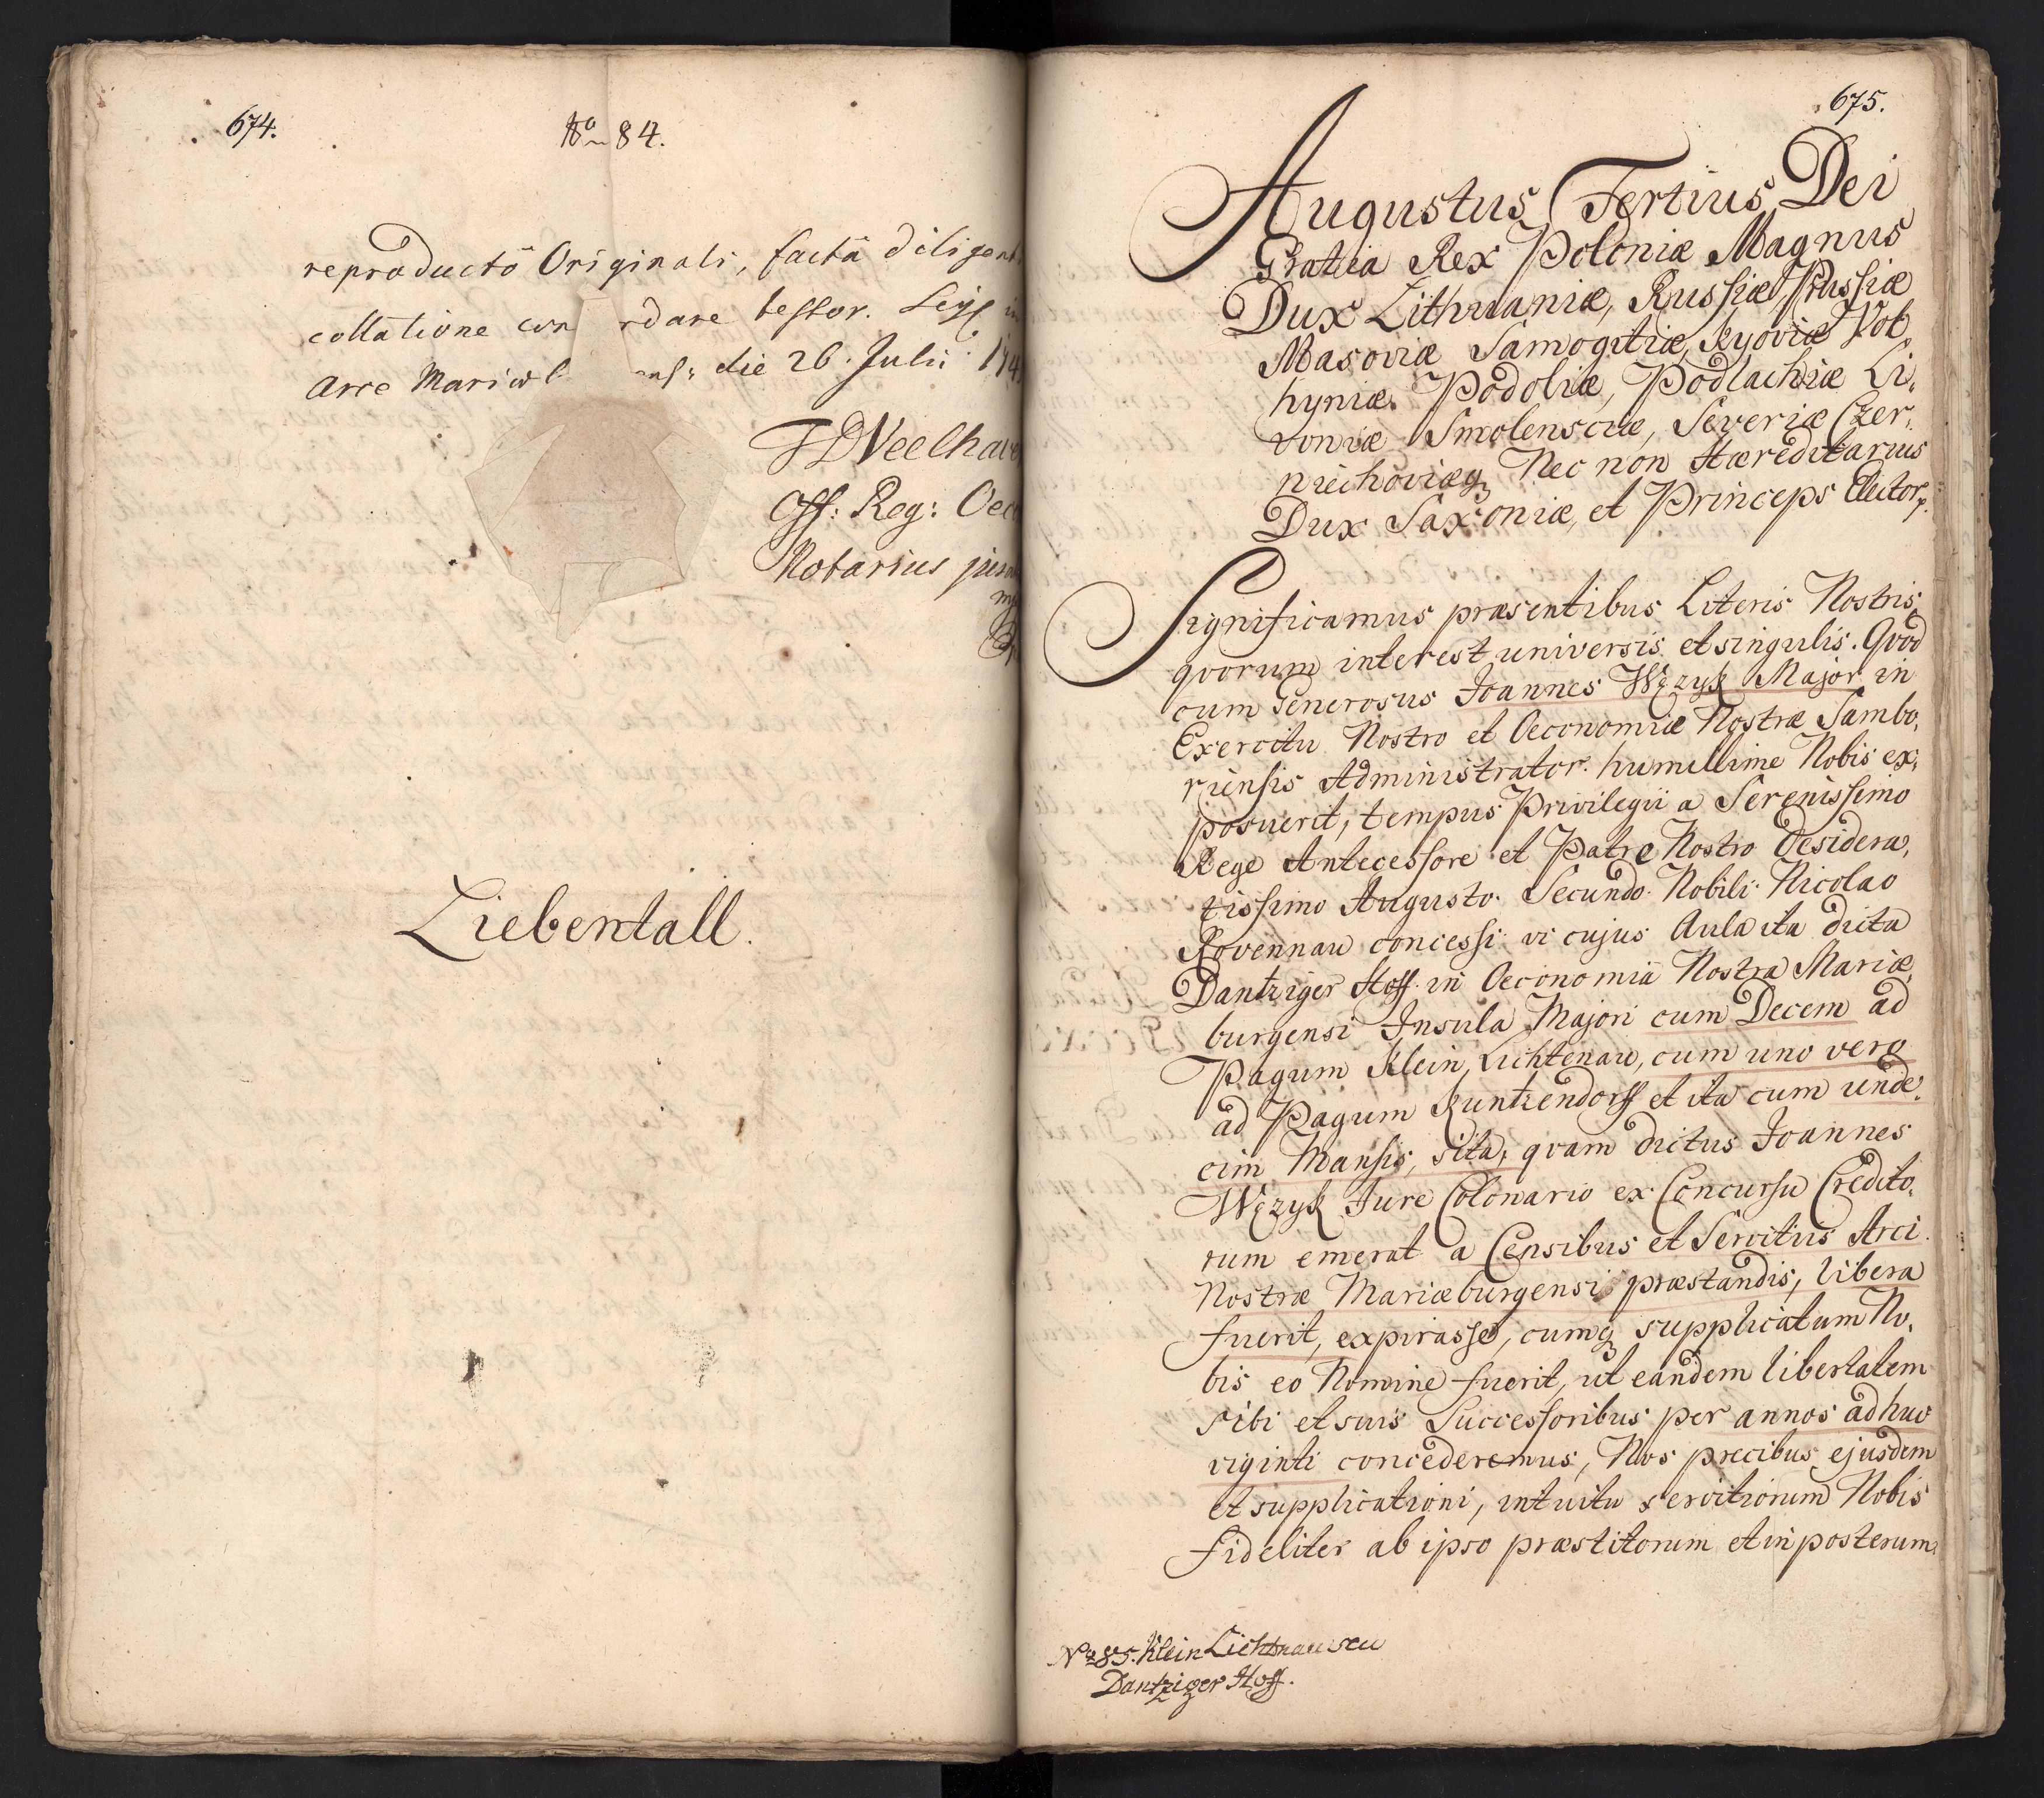 674.
No 84.
reproductô Originali, factâ diligent
collatione con rdare testor.
Arce Mariæb ens: die 26. Julii
Off: Reg: Oec
Notarius jur
Liebentall.
675.
Augustus Tertius Dei
Gratia Rex Poloniæ Magnus
Dux Lithuaniæ, Russiæ Prussiæ
Masoviæ Samogitiæ, Kyoviæ Vol,
hyniæ. Podoliæ, Podlachiæ Li,
voniæ Smolensciæ, Severiæ Czer,
niechoviæq Nec non Hæreditarius
Dux Saxoniæ, et Princeps Elector.
Significamus præsentibus Literis Nostris,
qvorum interest universis et singulis. Qvod
cum Generosus Joannes Węzyk Major in
Exercitu Nostro et Oeconomiæ Nostræ Sambo,
riensis Administrator. humillime Nobis ex,
posuerit, tempus Privilegii a Serenissimo
Rege Antecessore et Patre Nostro Desidera,
tissimo Augusto. Secundo. Nobili. Nicolao
Rovennau concessi vi cujus Aula ita dicta
Dantziger Hoff. in Oeconomiâ Nostra Mariæ,
burgensi Insula Majori cum Decem ad
Pagum Klein Lichtenau, cum uno vero
ad Pagum Kuntzendorff et ita cum unde,
cim Mansis, sita, qvam dictus Joannes
Węzyk Jure Colonario ex Concursu Credito,
rum emerat a Censibus et Servitiis Arci
Nostræ Mariæburgensi præstandis, libera
fuerit, expirasse, cumq supplicatum No,
bis eo Nomine fuerit, ut eandem libertatem
sibi et suis Successoribus per annos adhuc
viginti concederemus, Nos precibus ejusdem
et supplicationi, intuitu servitiorum Nobis
fideliter ab ipso præstitorum et in posterum
No 85. Klein Lichtnau seu
Dantziger Hoff.